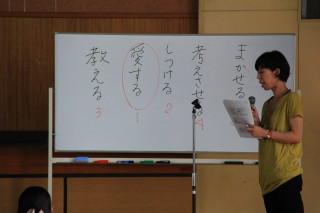 まかせる
考えさせる 4
しつける 2
愛する 1
教える 3